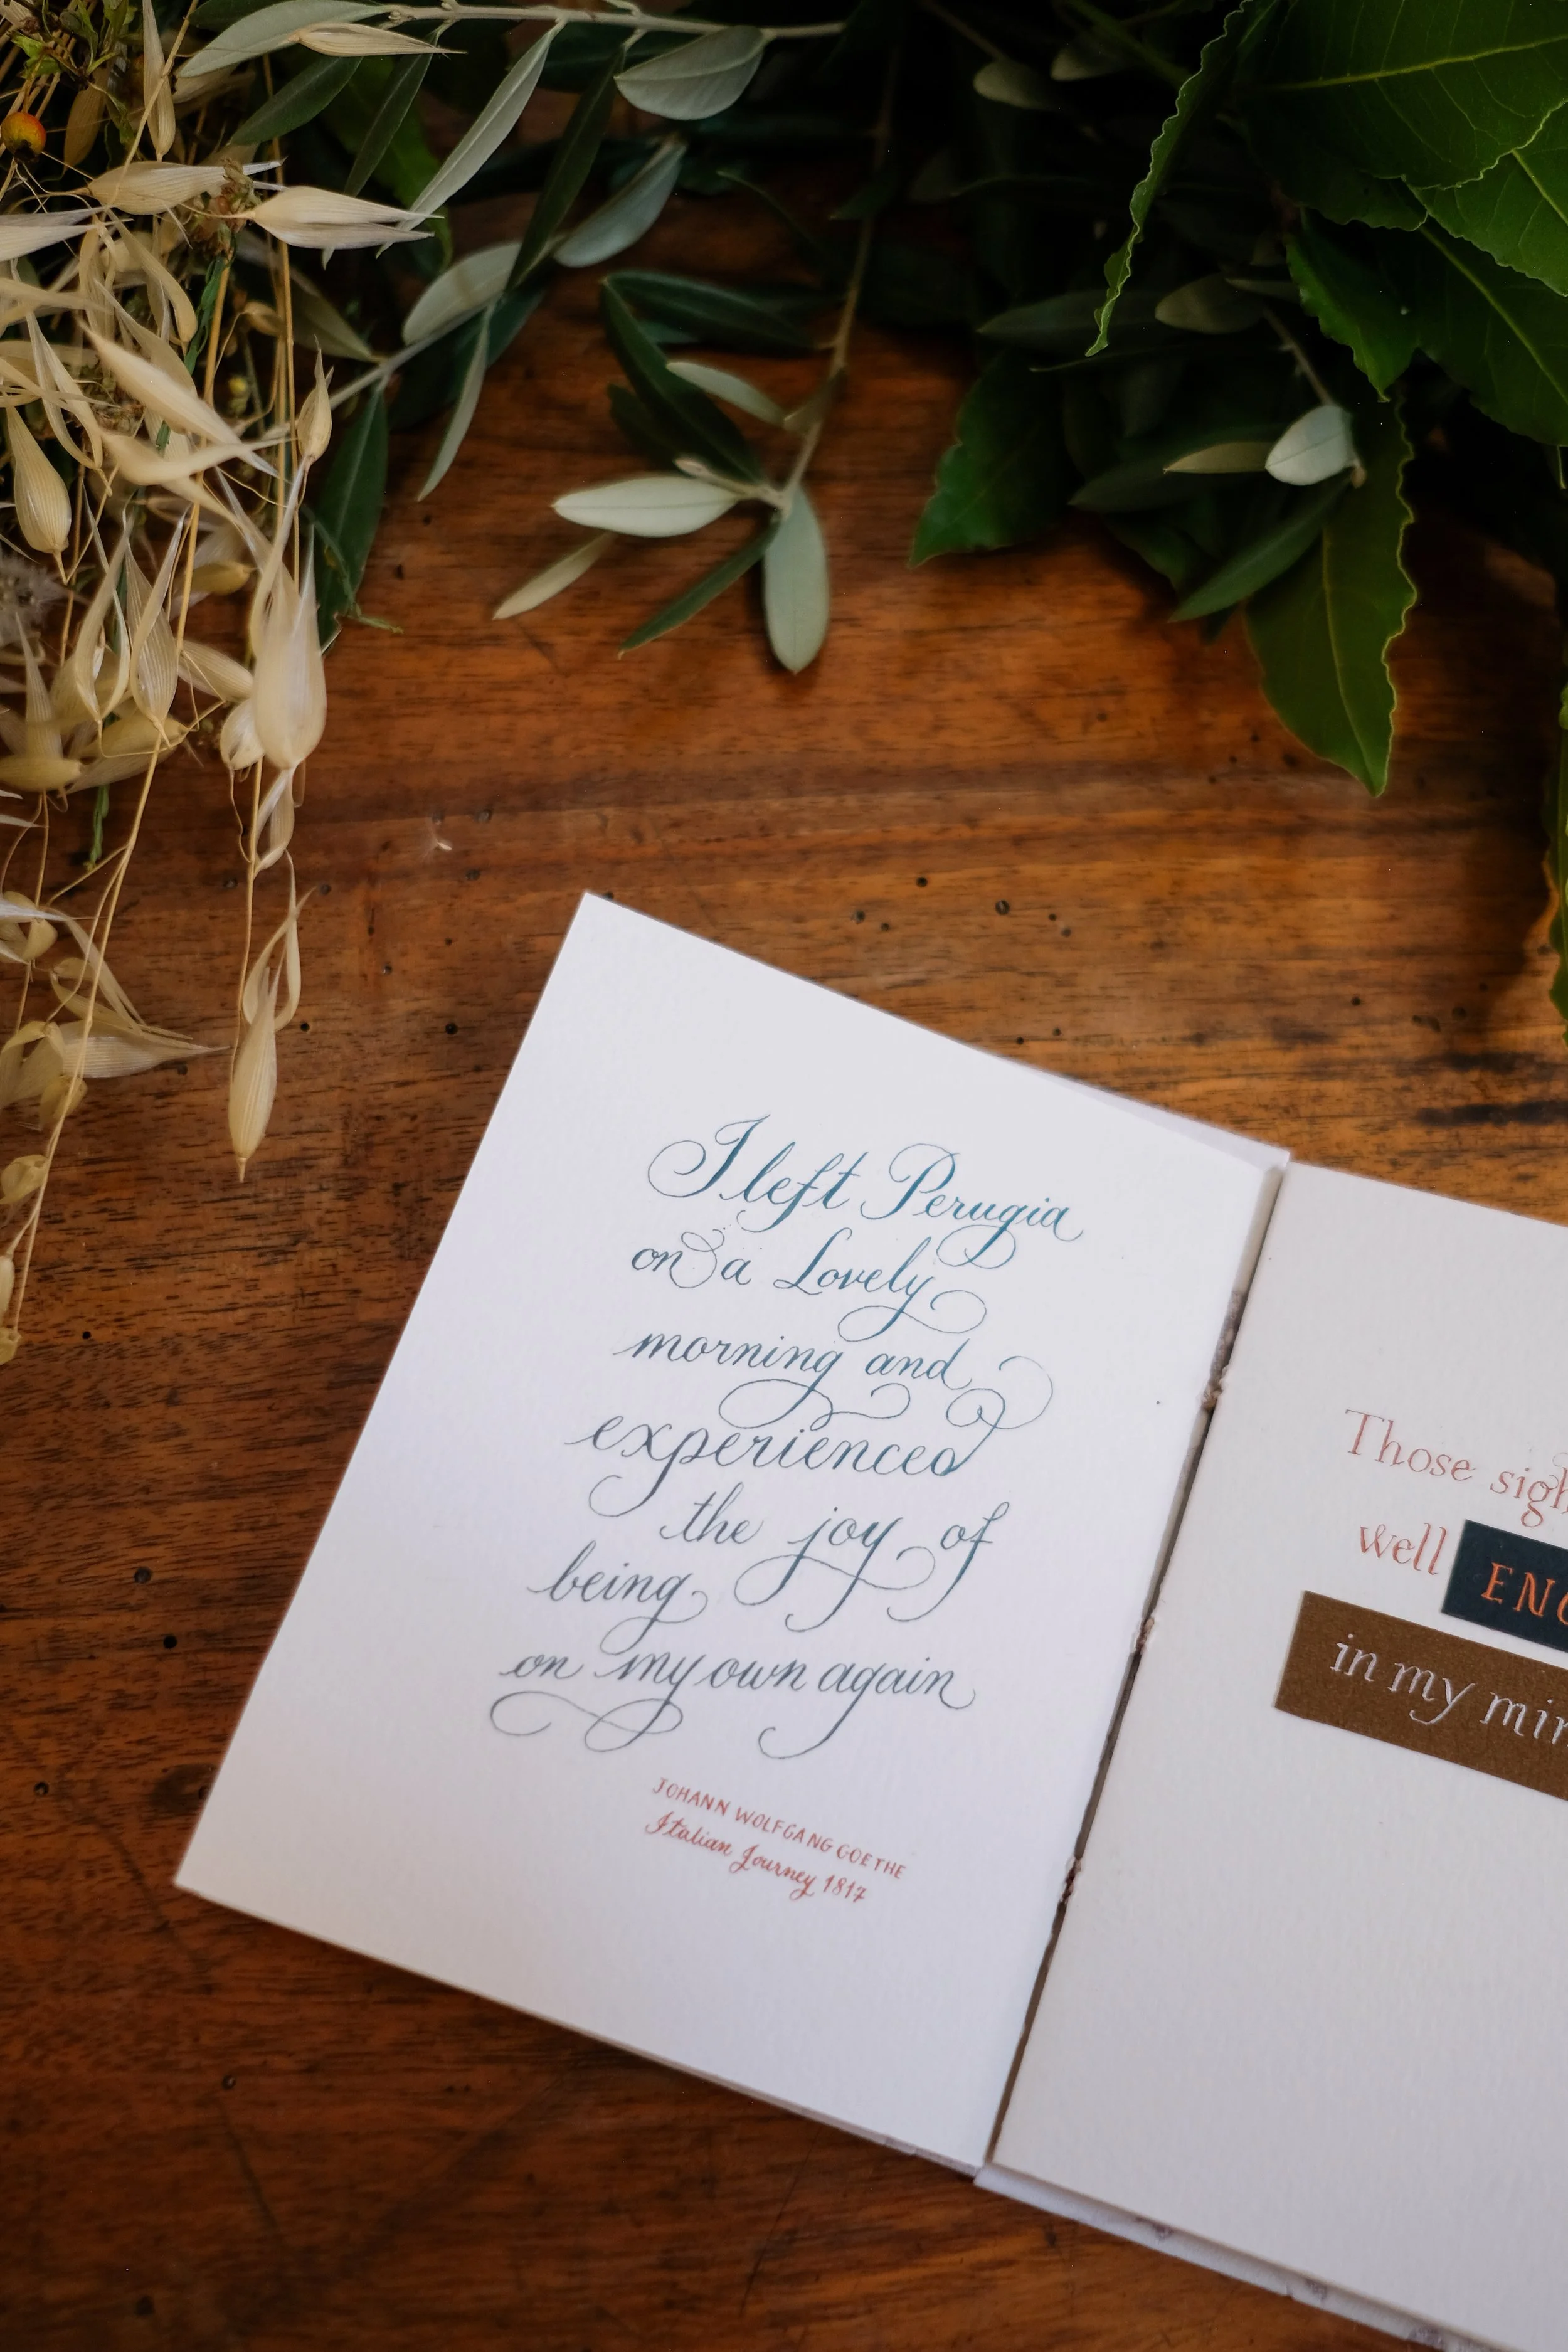 I left Perugia
on a Lovely
morning and
experienced
the joy of
being
on my own again
JOHANN WOLFGANG GOETHE
Italian Journey 1817
Those
well
in my